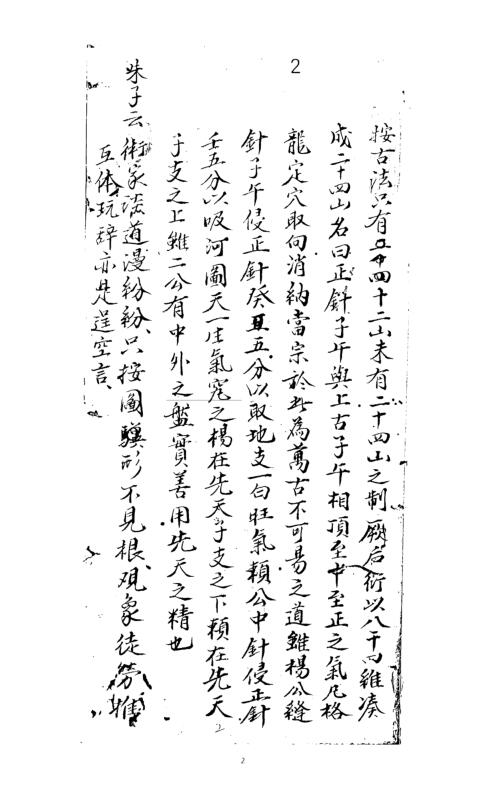 2
按古法只有四十二山未有二十四山之制厥后衍以八干四維湊
成二十四山名曰正針子午與上古子午相頂至中至正之氣凡格
龍定穴取向消納當宗於此為萬古不可易之道雖楊公縫
針子午侵正針癸丑五分以取地支一旬旺氣賴公中針侵正針
壬五分以吸河圖天一生氣究之楊在先天子支之下賴在先天
子支之上雖二公有中外之盤實善用先天之精也
朱子云術家談道漫紛紛只按圖驥形不見根观象徒勞推
互体玩辞亦是逞空言
2
2